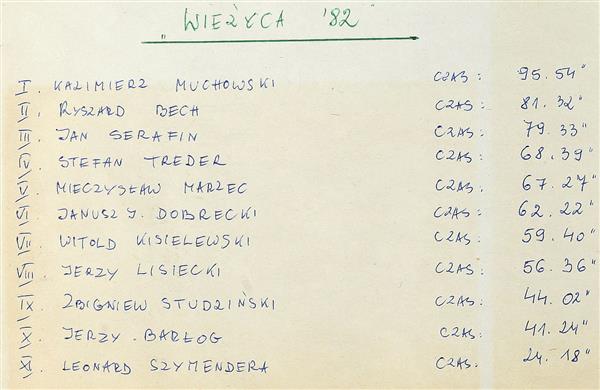 "WIEŻYCA '82"
I. KAZIMIERZ MUCHOWSKI CZAS: 95.54"
II. RYSZARD BECH CZAS: 81.32"
III. JAN SERAFIN CZAS: 79.33"
IV. STEFAN TREDER CZAS: 68.39"
V. MIECZYSŁAW MARZEC CZAS: 67.27"
VI. JANUSZ J. DOBRECKI CZAS: 62.22"
VII. WITOLD KISIELEWSKI CZAS: 59.40"
VIII. JERZY LISIECKI CZAS: 56.36"
IX. ZBIGNIEW STUDZIŃSKI CZAS: 44.02"
X. JERZY BARŁOG CZAS: 41.24"
XI. LEONARD SZYMENDERA CZAS: 24.18"